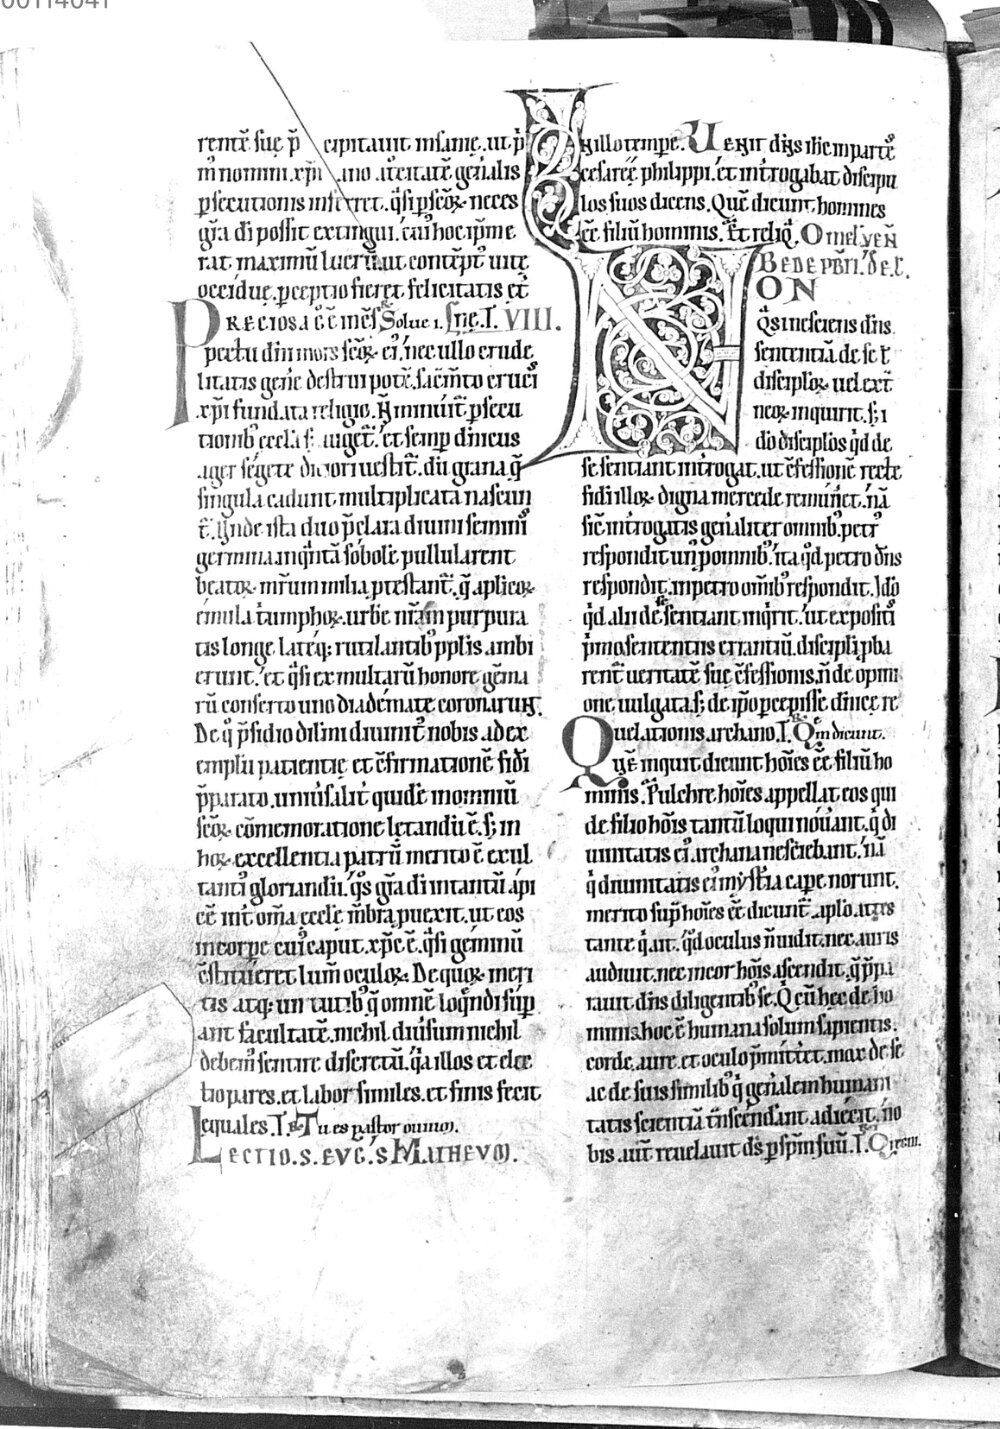 00114041
rentē suę p̄cipitauit insanię. ut p̄
m̄ nomini .xp̄i
p̄secutionis inferret. q̄si p̄ scōꝝ neces
gr̄a di possit extingui. cāū hoc ip̄m e
rat maximū lucrū. ut contēpt᷒ uitę
occiduę. p̄ceptio fieret felicitatis et̄
PRECIOSA Solue .i. VIII.
p̄petu dn̄i mors scōꝝ ei᷒. nec ullo crude
litatis gen̄e destrui potē. sac̄mto cruci᷒
.xp̄i fundata religio. Ñ minuit̄ p̄secu
tionib᷒ eccl̄a. s; auget̄. et semp̄ dn̄icus
ager segete ditiori uestit̄. dū grana q̄
singula cadunt multiplicata nascun
t̄. Ynde ista duo p̄clara diuini semini᷒
germina inq̄nta sobolē pullularent
beatoꝝ mr̄um milia p̄testant̄. q̄ aplicoꝝ
emula t̄umphoꝝ. urbē nr̄am purpura
tis longe lateq; rutilantib᷒ pplis ambi
erunt. et q̄si ex multarū honore gēma
rū conserto uno diademate coronarunt.
De q᷒ p̄sidio dil̄mi diuinit᷒ nobis ad ex
emplū patientię et cfirmationē fidi
p̄parato. uniuersalit᷒ quidē in omniū
scōꝝ cōmemoratione lętandū ē. s; in
hoꝝ excellentia patrū merito ē exul
tanti᷒ gloriandū. q̄s gr̄a di in tantū api
cē int̄ om̄a eccl̄ę m̄bra puexit. ut eos
in corpe cui᷒ caput .xp̄c ē. q̄si geminū
cstitueret lum̄ oculoꝝ. De quoꝝ meri
tis atq; uirtutib᷒ q̄ omnē loq̄ndi sup̄
ant facultatē. nichil diuersum nichil
debem᷒ sentire discretū. q̄a illos et elec
tio pares. et labor similes. et finis fecit
equales. Tu es pastor ouium.
LECTIO .S. EVG̅. S MATHEVM.
IN illo tempe. Uenit dn̄s ih̄c in parte᷒
cesaręę philippi. et int̄rogabat discipu
los suos dicens. Quē dicunt homines
ēē filiū hominis. Et reliq̄. Omel' VEN̄
BEDE PBR̄I. de .l.
ON
Q᷒si nesciens dn̄s
sententiā de se t̄
discip̄loꝝ uel ext̄
neoꝝ inquirit. s; i
dō discip̄los q̄d de
se sentiant int̄rogat. ut cfessionē rectę
fidi illoꝝ digna mercede remun̄et. nā
sic int̄rogatis gen̄aliter omnib᷒. petr᷒
respondit un᷒ p omnib᷒. ita q̄d petro dn̄s
respondit. in petro om̄ib᷒ respondit. Idō
q̄d alii de se sentiant inq̄rit. ut expositi᷒
p̄mo sententiis errantiū. discip̄li pba
rent̄ ueritatē suę cfessionis. ñ de opini
one uulgata. s; de ip̄o pcepisse dn̄icę re
uelationis archano. Qm̄ dicunt.
Quē inquit dicunt hoīes ēē filiū ho
minis. Pulchre hoīes appellat eos qui
de filio hoīs tantū loqui nouant. q̄ di
uinitatis ei᷒ archana nesciebant. nā
q̄ diuinitatis ei᷒ mystia capē norunt.
merito sup̄ hoīes ēē dicunt̄. aplo. attes
tante q̄ ait. q̄d oculus ñ uidit. nec auris
audiuit. nec in cor hoīs ascendit. q̄ p̄pa
rauit dn̄s diligentib᷒ se. Q̄ cū hęc de ho
minib᷒ hoc ē humana solum sapientis.
corde. aure. et oculo p̄mitteret. mox de se
ac de suis similib᷒ q̄ gen̄alem humani
tatis scientiā t̄nscendant adiecit. no
bis .aut̄ reuelauit ds̄ p sp̄m suū.